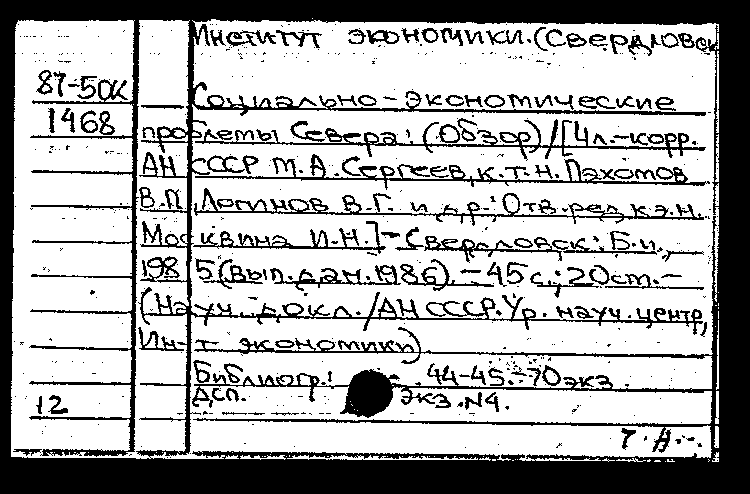 Институт экономики. (Свердловск
87-5ОК
Социально-экономические
1468
проблемы Севера: (Обзор) / [Чл.-корр.
АН СССР М.А. Сергеев, к.т.н. Пахомов
В.П., Логинов В.Г. и др.; Отв. ред. к.э.н.
Москвина И.Н.] - Свердловск: Б.и.,
1985 (вып. дан. 1986). - 45 с.; 20 см. -
(Науч. докл. / АН СССР. Ур. науч. центр,
Ин-т экономики).
Библиогр.: 44-45. - 70 экз.
ДСП. экз. N4.
12